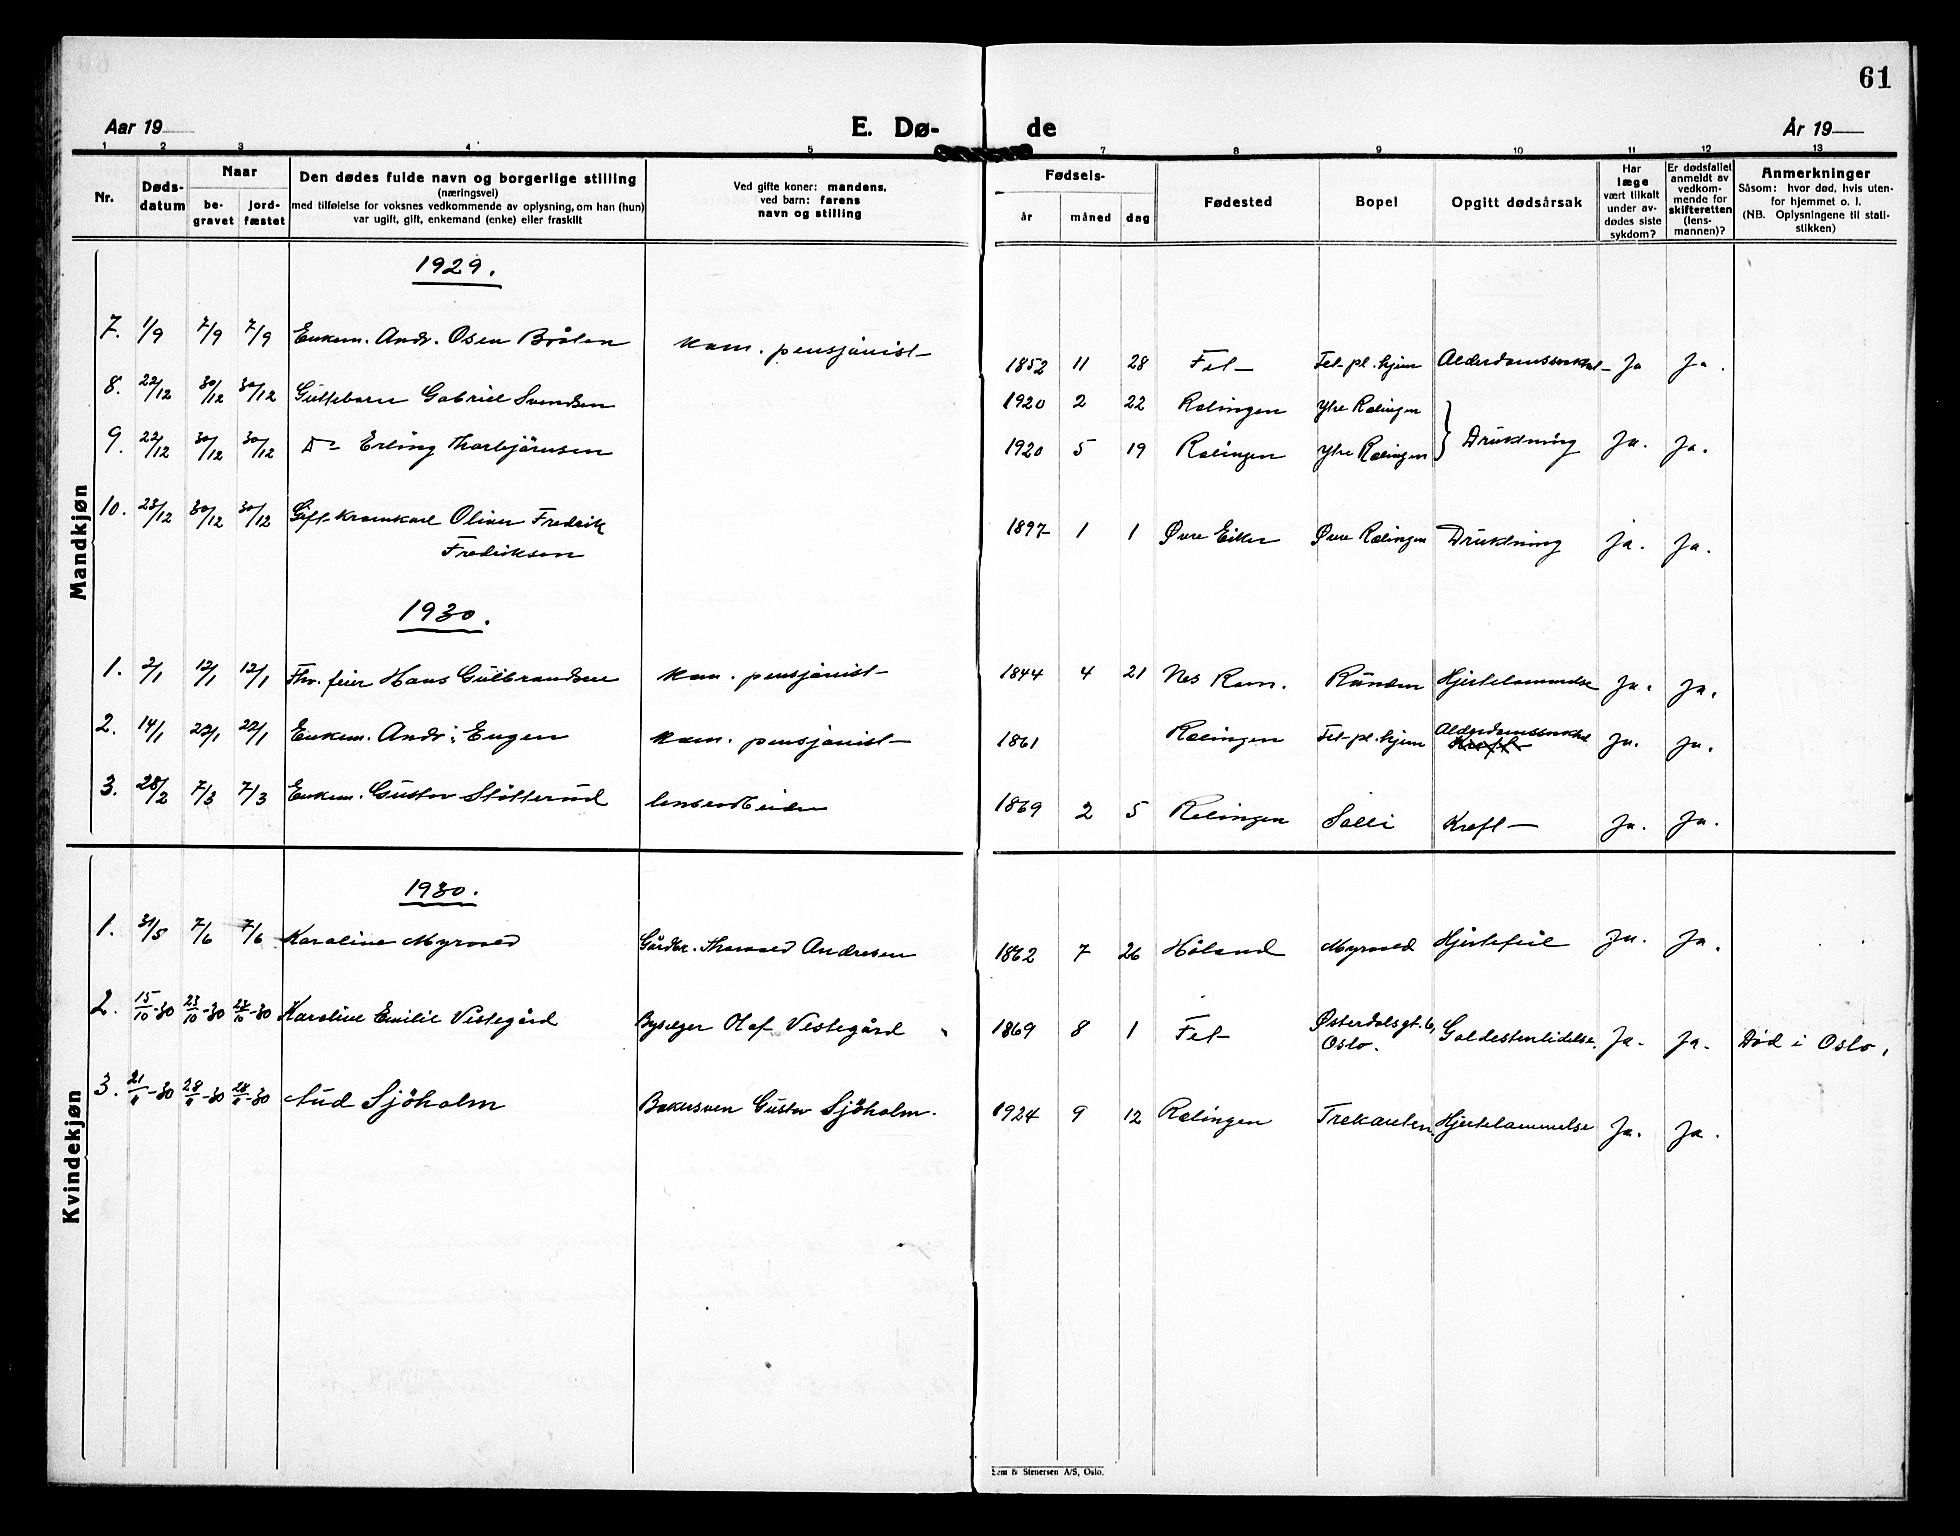 61
Aar 19
E. Dø-
de
År 19
1 2 3 4 5 7 8 9 10 11 12 13
Nr.
Døds-
datum
Naar
be-
gravet
jord-
fæstet
Den dødes fulde navn og borgerlige stilling
(næringsvei)
med tilføielse for voksnes vedkommende av oplysning, om han (hun)
var ugift, gift, enkemand (enke) eller fraskilt
Ved gifte koner: mandens,
ved barn: farens
navn og stilling
Fødsels-
år måned dag
Fødested
Bopel
Opgitt dødsårsak
Har
læge
vært tilkalt
under av-
dødes siste
sykdom?
Er dødsfallet
anmeldt av
vedkom-
mende for
skifteretten
(lens-
mannen)?
Anmerkninger
Såsom: hvor død, hvis uten-
for hjemmet o. l.
(NB. Oplysningene til stati-
stikken)
Mandkjøn
1929.
7. 1/9 7/9 7/9 Enkem. Andr. Osen Bråten kom. pensjonist 1852 11 28 Fet Fet pl. hjem Alderdomssvakhet Ja Ja.
8. 22/12 30/12 30/12 Guttebarn Gabriel Svendsen 1920 2 22 Rælingen Ytre Rælingen
9. 22/12 30/12 30/12 Do Erling Thorbjørnsen 1920 5 19 Rælingen Ytre Rælingen } Drukning Ja. Ja.
10. 23/12 30/12 30/12 Gift Oliver Fredrik
Fredriksen 1897 1 1 Øvre Eiker Øvre Rælingen Drukning ja. Ja.
1930.
1. 2/1 12/1 12/1 Fhv. feier Hans Gulbrandsen kom. pensjonist 1844 4 21 Nes Rom. Rånden Hjertelammelse Ja. Ja.
2. 14/1 22/1 22/1 Enkem. Andr. Eugen kom. pensjonist 1861 Rælingen Fet pl. hjem Alderdomssvakhet
Kreft Ja. Ja.
3. 28/2 7/3 7/3 Enkem. Gustav Støtterud lensearbeider 1869 2 5 Rælingen Solli Kreft Ja. Ja.
Kvindekjøn
1930.
1. 31/5 7/6 7/6 Karoline Myrvold Gårdbr. Thorvald Andresen 1862 7 26 Høland Myrvold Hjertefeil Ja. Ja.
2. 15/10-30 23/10-30 23/10-30 Karoline Emilie Vestegård Byselger Olaf Vestegård 1869 8 1 Fet Østerdalsgt. 6,
Oslo. Galdestenlidelse. Ja. Ja. Død i Oslo.
3. 21/11-30 28/11-30 28/11-30 Aud Sjöholm Bakersven Gustav Sjöholm. 1924 9 12 Rælingen Trekanten Hjertelammelse Ja. Ja.
Sem & Stenersen A/S, Oslo.